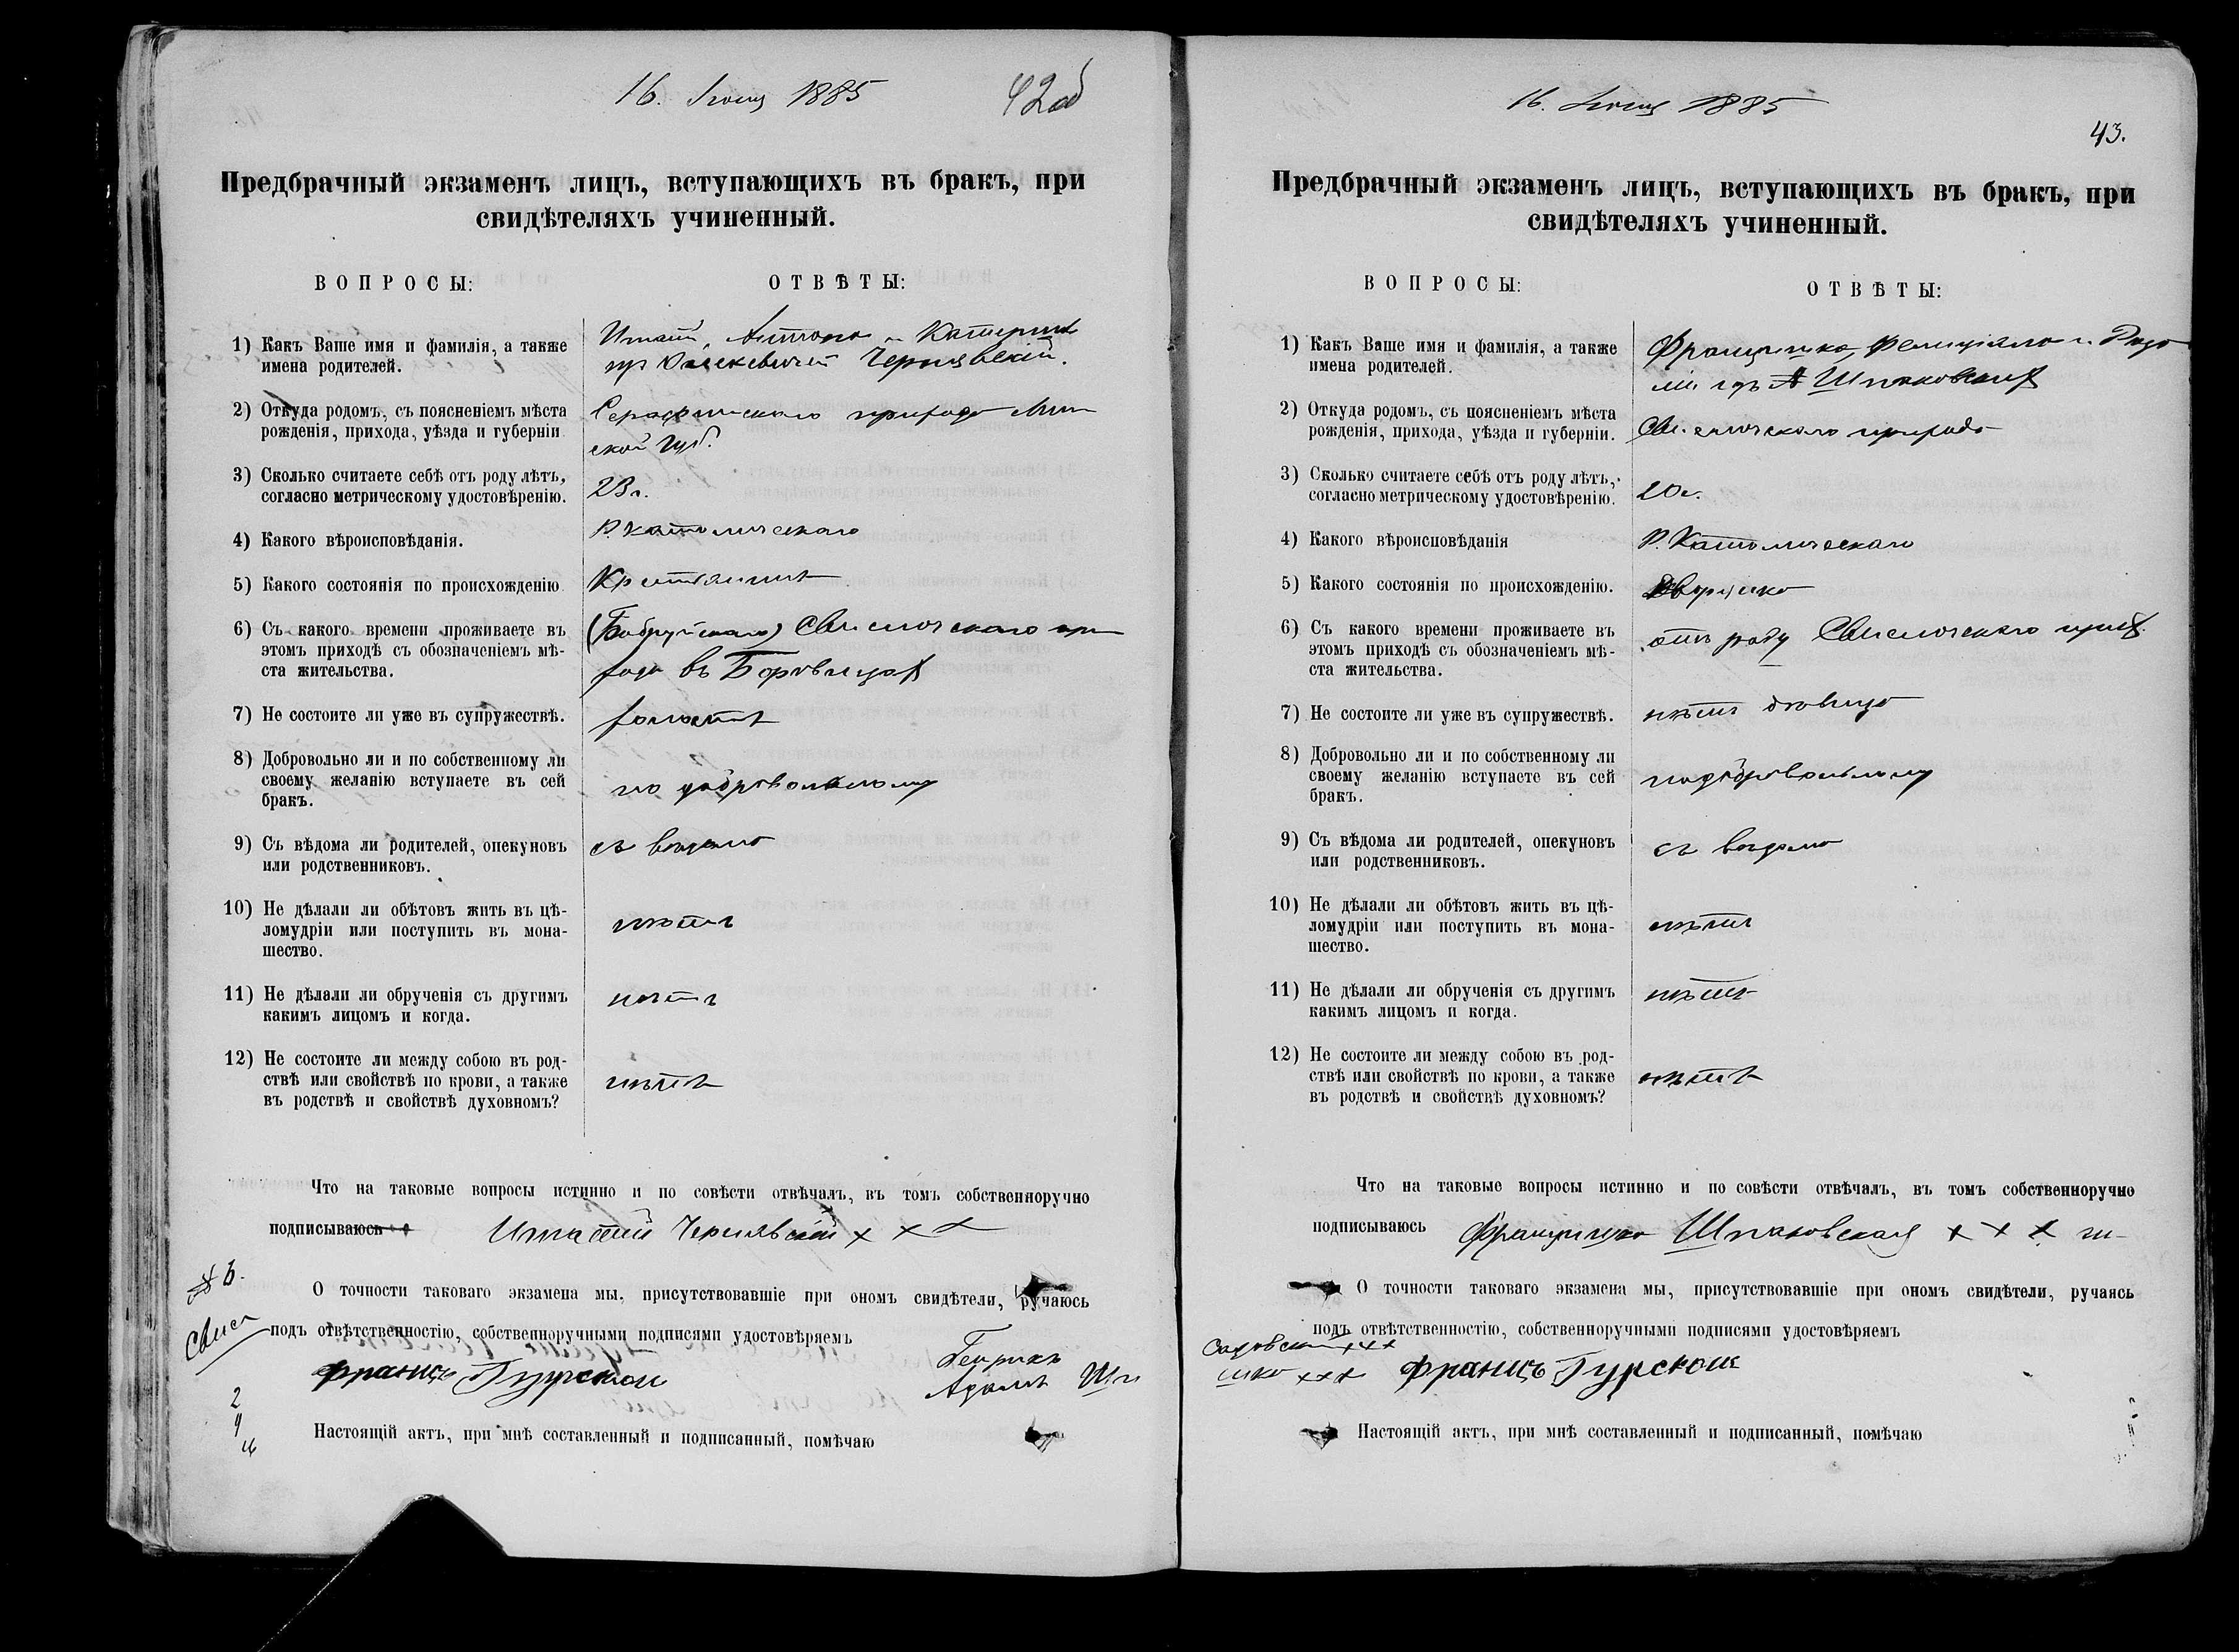 16. Іюня 1885
42об
Предбрачный экзаменъ лицъ, вступающихъ въ бракъ, при
свидѣтеляхъ учиненный.
ВОПРОСЫ:
ОТВѢТЫ:
1) Какъ Ваше имя и фамилія, а также
имена родителей.
Антона и Катерины
Чернявскій.
2) Откуда родомъ, съ поясненіемъ мѣста
рожденія, прихода, уѣзда и губерніи
Серафинскаго прихода Мин
ской губ.
3) Сколько считаете себѣ отъ роду лѣтъ,
согласно метрическому удостовѣренію.
23 л.
4) Какого вѣроисповѣданія.
Р. католическаго
5) Какого состоянія по происхожденію
Крестянинъ
6) Съ какого времени проживаете въ
этомъ приходѣ съ обозначеніемъ мѣ-
ста жительства.
(Бобруйскаго) Свислочскаго при
хода въ Боровицах
7) Не состоите ли уже въ супружествѣ.
холостъ
8) Добровольно ли и по собственному ли
своему желанію вступаете въ сей
бракъ.
по добровольному
9) Съ вѣдома ли родителей, опекуновъ
или родственниковъ.
съ вѣдома
10) Не дѣлали ли обѣтовъ жить въ цѣ-
ломудріи или поступить въ мона-
шество.
нѣтъ
11) Не дѣлали ли обрученія съ другимъ
какимъ лицомъ и когда.
нѣтъ
12) Не состоите ли между собою въ род-
ствѣ или свойствѣ по крови, а также
въ родствѣ и свойствѣ духовномъ?
нѣтъ
Что на таковые вопросы истинно и по совѣсти отвѣчалъ, въ томъ собственноручно
подписываюсь Чернявскій × × ×
О точности таковаго экзамена мы, присутствовавшіе при ономъ свидѣтели, ручаюсь
подъ отвѣтственностію, собственноручными подписями удостовѣряемъ
Свисл
Францъ Гурскои
Генрикъ
Адамъ Шп
Настоящій актъ, при мнѣ составленный и подписанный, помѣчаю
16. Іюня 1885
43.
Предбрачный экзаменъ лицъ, вступающихъ въ бракъ, при
свидѣтеляхъ учиненный.
ВОПРОСЫ:
ОТВѢТЫ:
1) Какъ Ваше имя и фамилія, а также
имена родителей.
Францишка, Фелиціяна и Розо
ліи Шпаковских
2) Откуда родомъ, съ поясненіемъ мѣста
рожденія, прихода, уѣзда и губерніи.
Свислочскаго прихода
3) Сколько считаете себѣ отъ роду лѣтъ,
согласно метрическому удостовѣренію.
20 л.
4) Какого вѣроисповѣданія
Р. Католическаго
5) Какого состоянія по происхожденію.
Дворянка
6) Съ какого времени проживаете въ
этомъ приходѣ съ обозначеніемъ мѣ-
ста жительства.
отъ роду Свислочскаго прих.
7) Не состоите ли уже въ супружествѣ.
нѣтъ дѣвица
8) Добровольно ли и по собственному ли
своему желанію вступаете въ сей
бракъ.
подобровольному
9) Съ вѣдома ли родителей, опекуновъ
или родственниковъ.
съ вѣдома
10) Не дѣлали ли обѣтовъ жить въ цѣ-
ломудріи или поступить въ мона-
шество.
нѣтъ
11) Не дѣлали ли обрученія съ другимъ
какимъ лицомъ и когда.
нѣтъ
12) Не состоите ли между собою въ род-
ствѣ или свойствѣ по крови, а также
въ родствѣ и свойствѣ духовномъ?
нѣтъ
Что на таковые вопросы истинно и по совѣсти отвѣчалъ, въ томъ собственноручно
подписываюсь Францишка Шпаковская × × ×
О точности таковаго экзамена мы, присутствовавшіе при ономъ свидѣтели, ручаясь
подъ отвѣтственностію, собственноручными подписями удостовѣряемъ
Садовский ×××
××× Францъ Гурскои
Настоящій актъ, при мнѣ составленный и подписанный, помѣчаю